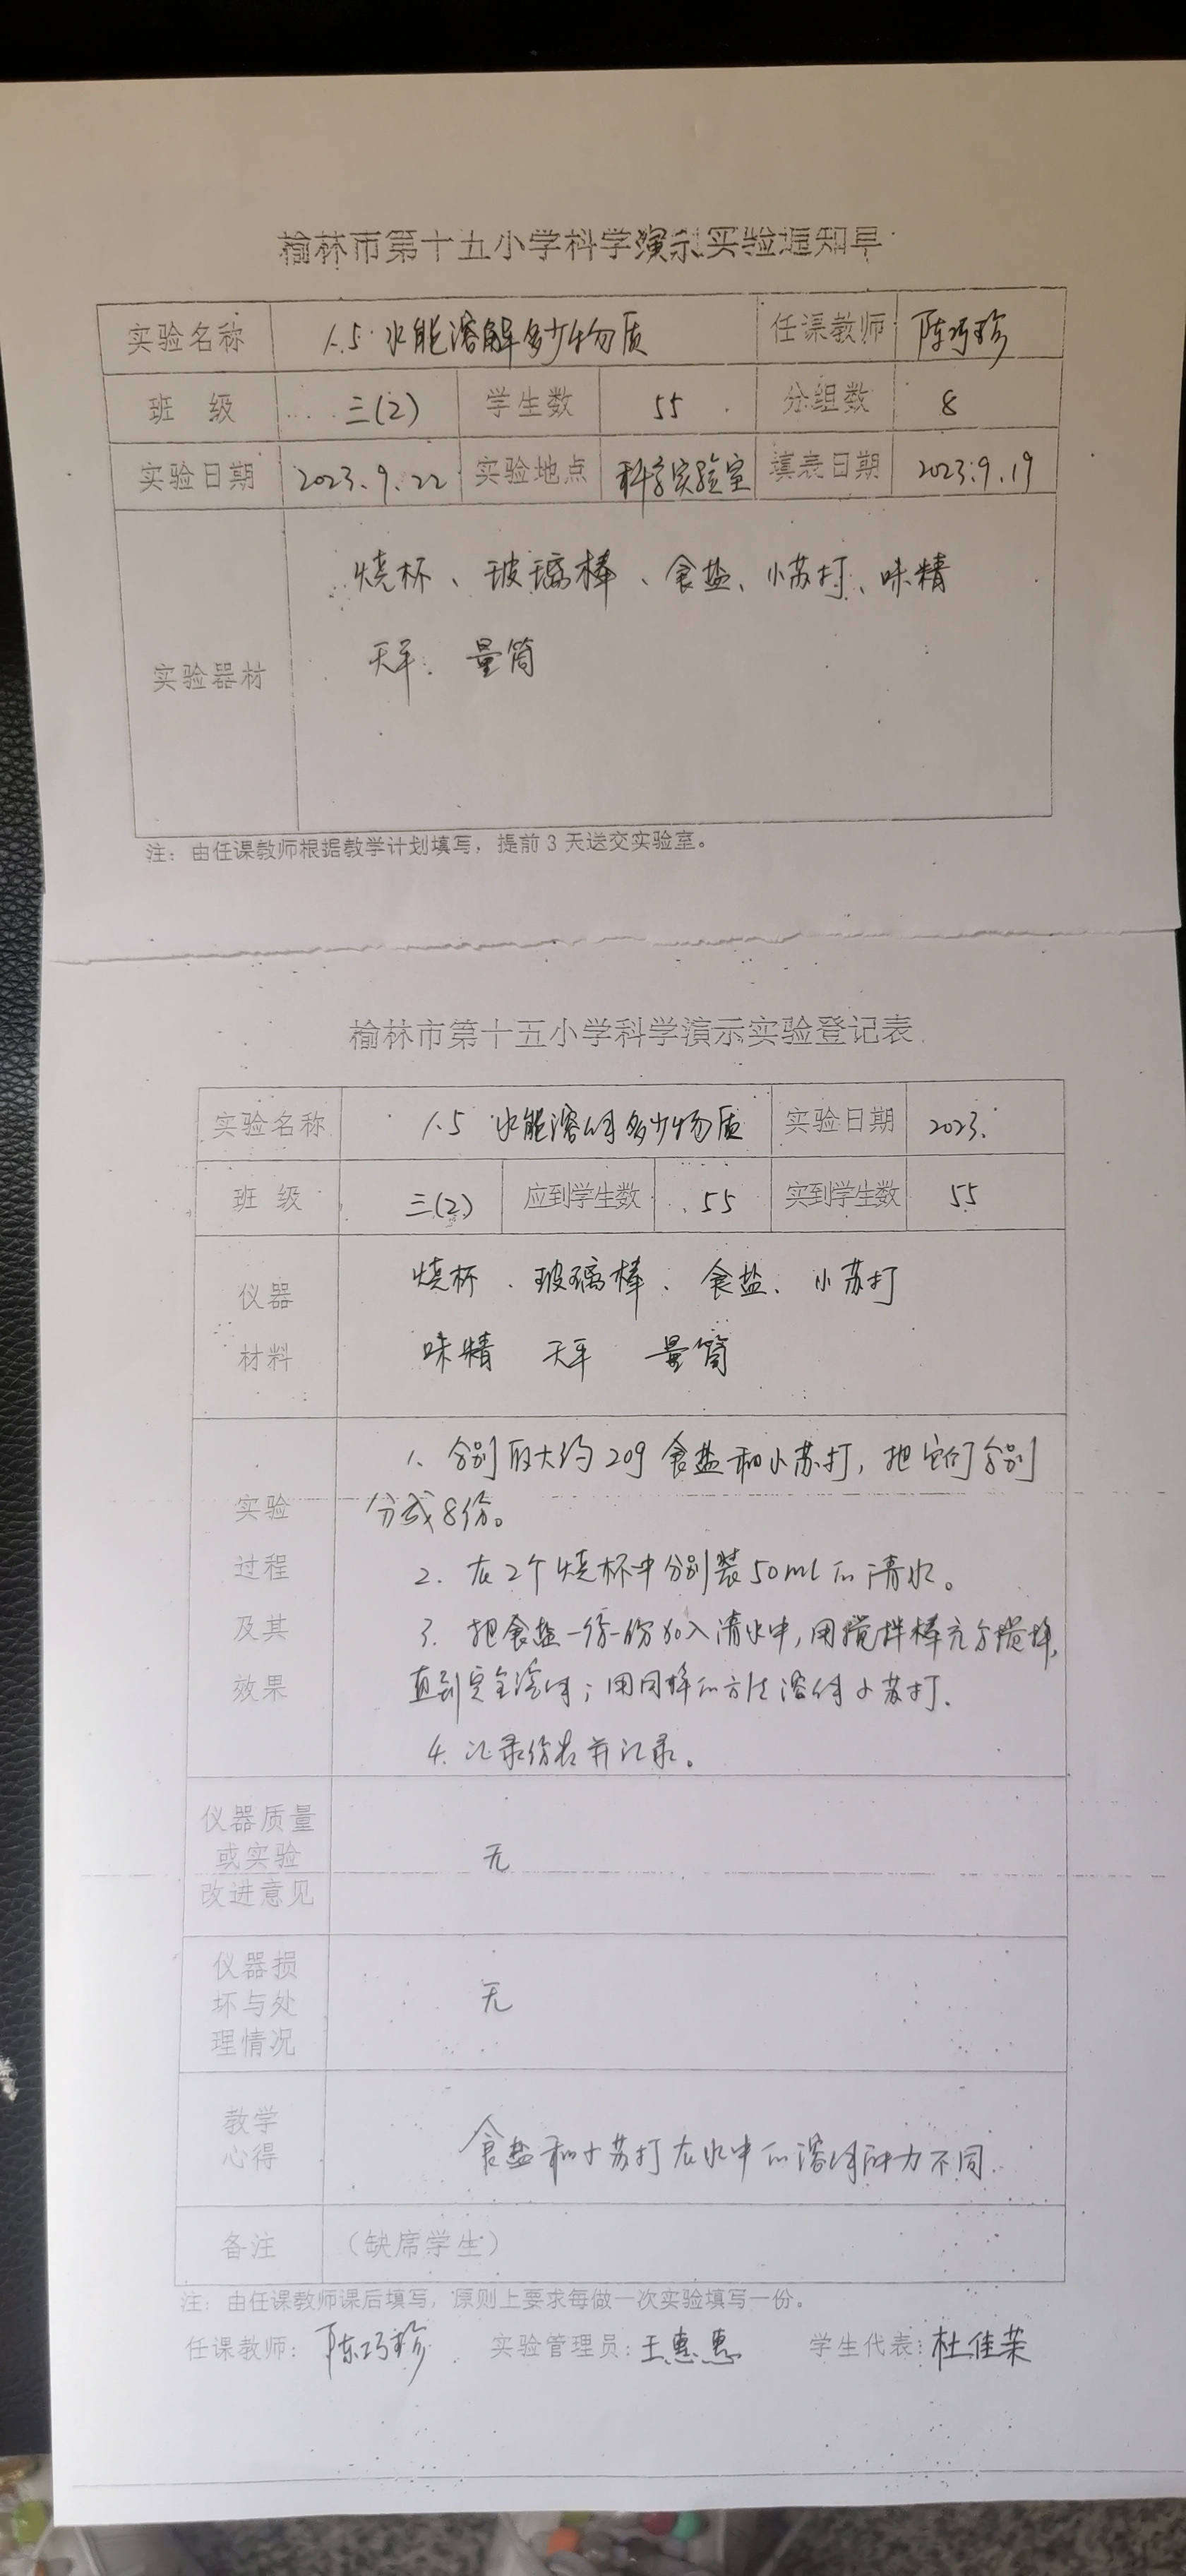 榆林市第十五小学科学演示实验通知单
实验名称 1.5 水能溶解多少物质 任课教师 陈巧珍
班 级 三(2) 学生数 55 分组数 8
实验日期 2023.9.22 实验地点 科学实验室 填表日期 2023.9.19
烧杯、玻璃棒、食盐、小苏打、味精
天平、量筒
实验器材
注：由任课教师根据教学计划填写，提前3天送交实验室。
榆林市第十五小学科学演示实验登记表
实验名称 1.5 水能溶解多少物质 实验日期 2023.
班 级 三(2) 应到学生数 55 实到学生数 55
仪器 烧杯、玻璃棒、食盐、小苏打
材料 味精 天平 量筒
1、分别取大约20g食盐和小苏打，把它们分别
实验 分成8份。
过程 2. 在2个烧杯中分别装50ml的清水。
及其 3. 把食盐一份一份加入清水中，用搅拌棒充分搅拌，
效果 直到完全溶解；用同样的方法溶解小苏打.
4. 记录份数并记录。
仪器质量
或实验 无
改进意见
仪器损
坏与处 无
理情况
教学
心得 食盐和小苏打在水中的溶解能力不同.
备注 （缺席学生）
注：由任课教师课后填写，原则上要求每做一次实验填写一份。
任课教师：陈巧珍 实验管理员：王惠惠 学生代表：杜佳荣